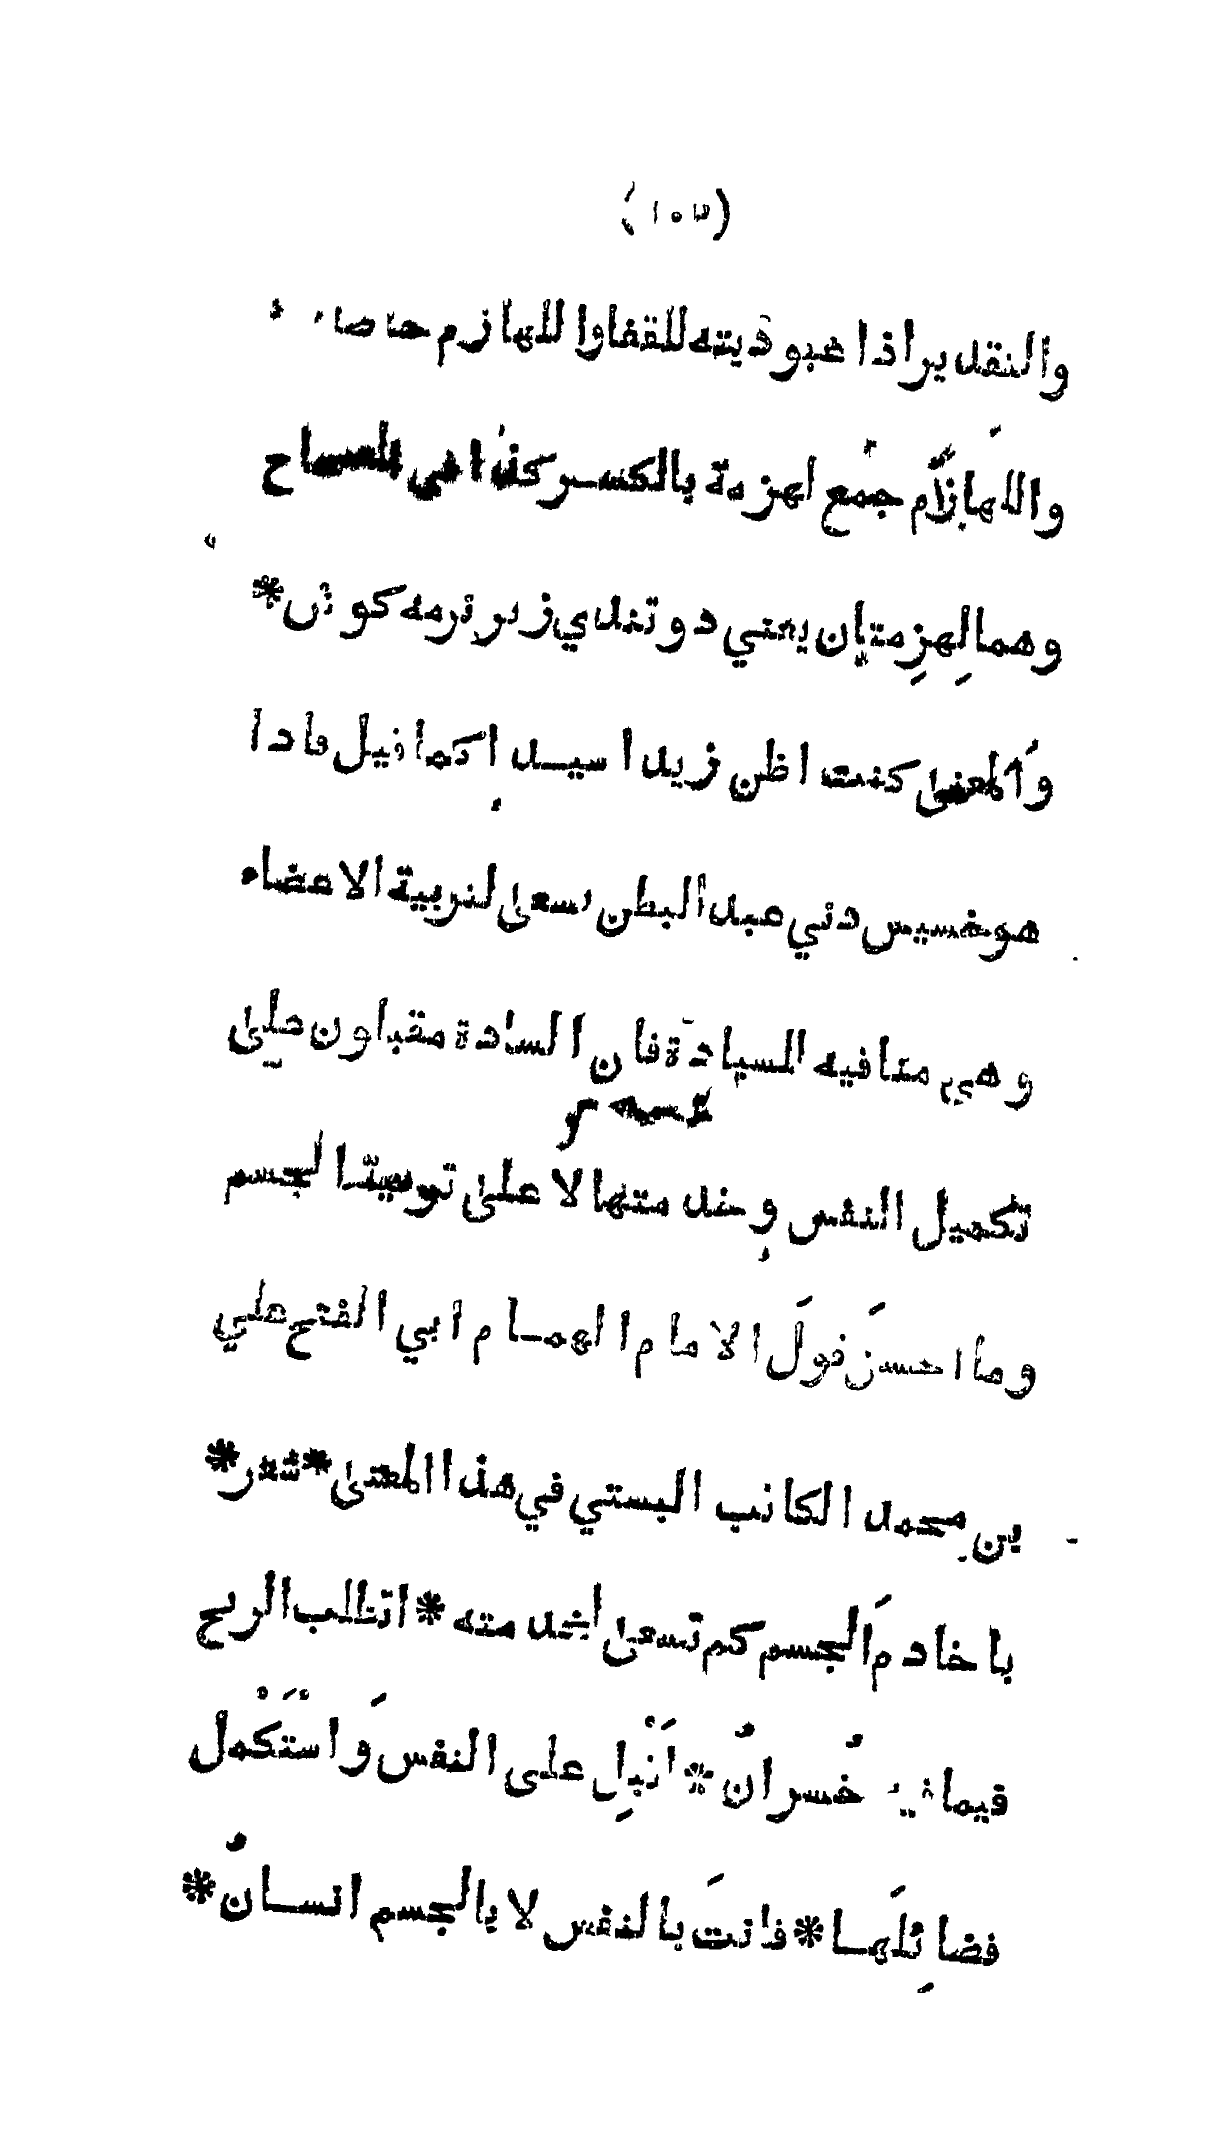 (١٠٣)
والنقد يراذا عبو ديته للقفاوا للها زم حاصا
واللهازم جمع لهزمة بالكسر كذا في الصراح
وهما لهزمتان يعني دو تندي زير نرمه كوش*
والمعنى كنت اظن زيدا سيدا كما قيل فاذا
هو خسيس دني عبد البطن يسعى لتربية الاعضاء
و هي منافيه السيادة فان السادة مقبلون على
تكميل النفس و خد متها لا على توسيتا لجسم
تسمية م
وما احسنَ قولَ الا ما م ا لهمـا م ا بي ا لفتح علي
بن محمد ا لكا تب ا لبستي في هذا المعنى* شعر*
يا خا د مَ الجسم كم تسعى لخد مته * ا تطلب الربح
فيما فيه خُسرا نٌ * اَقْبِل على النفس وَ استَكْمل
فضا ئلَهـا * فا نتَ با لنفس لا با لجسم ا نسـا نٌ *